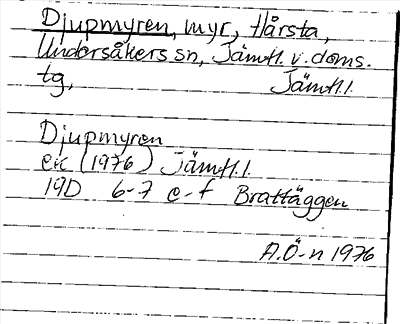 Djupmyren, myr, Hårsta,
Undersåkers sn, Jämtl. v. doms.
tg, Jämtl.l.
Djupmyren
ek (1976) Jämtl.l.
19D 6-7 e-f Brattäggen
A.Ö-n 1976